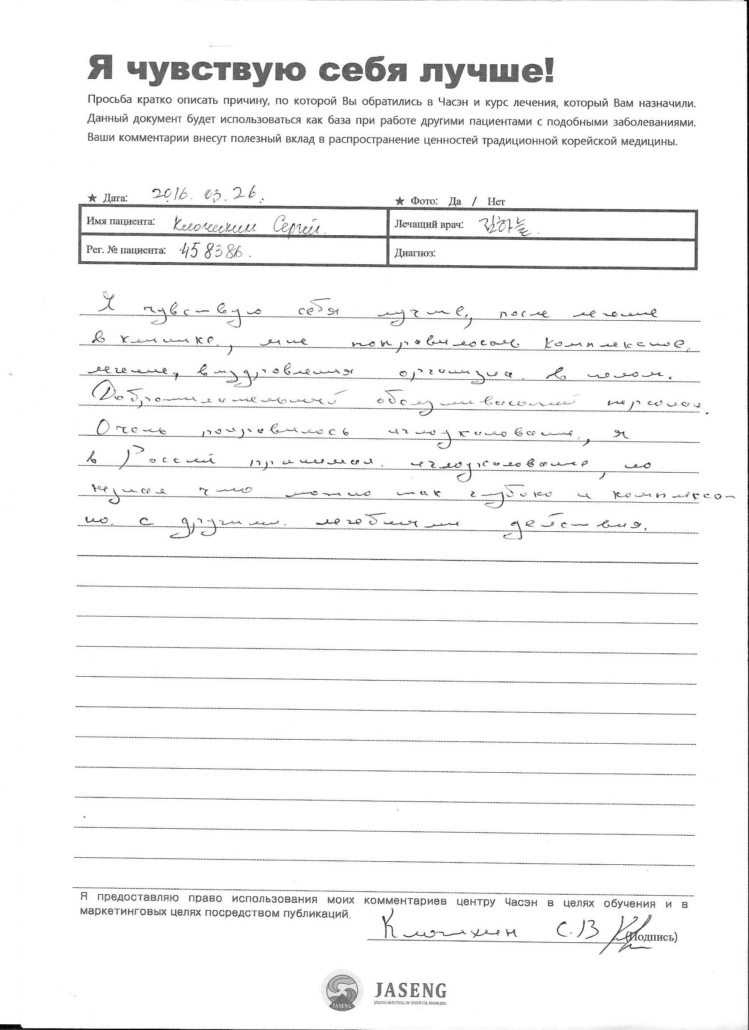 Я чувствую себя лучше!
Просьба кратко описать причину, по которой Вы обратились в Часэн и курс лечения, который Вам назначили.
Данный документ будет использоваться как база при работе другими пациентами с подобными заболеваниями.
Ваши комментарии внесут полезный вклад в распространение ценностей традиционной корейской медицины.
★ Дата: 2016. 03. 26. ★ Фото: Да / Нет
Имя пациента: Сергей Лечащий врач: 김하늘
Рег. № пациента: 458386. Диагноз:
Я чувствую себя лучше, после лечение
в клинике, мне понравилосль комплексное
лечение, организма в целом.
обслуживающий персонал.
Очень понравилось иглоукалование, я
в России принимал иглоукалование, но
незнал что можно так глубоко и комплексо-
но с другими лечебными действия.
Я предоставляю право использования моих комментариев центру Часэн в целях обучения и в
маркетинговых целях посредством публикаций.
С.В (Подпись)
JASENG